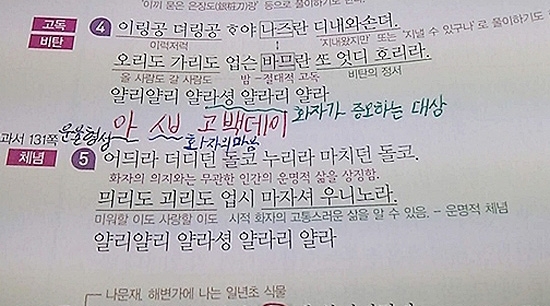 "이끼 묻은 은장도(銀粧刀랑" 등으로 풀이하기도 한다.
고독 비탄
4 이링공 뎌링공 ᄒᆞ야 나즈란 디내와손뎌.
이럭저럭 '지내왔지만' 또는 '지낼 수 있구나'로 풀이하기도
오리도 가리도 업슨 바므란 ᄯᅩ 엇디 호리라.
올 사람도 갈 사람도 밤-절대적 고독 비탄의 정서
얄리얄리 얄라셩 얄라리 얄라
운율형성 아 시ㅂ 고백데이 화자가 증오하는 대상
화자의마음
과서 131쪽
체념
5 어듸라 더디던 돌코 누리라 마치던 돌코.
화자의 의지와는 무관한 인간의 운명적 삶을 상징함.
믜리도 괴리도 업시 마자셔 우니노라.
미워할 이도 사랑할 이도 시적 화자의 고통스러운 삶을 알 수 있음. - 운명적 체념
얄리얄리 얄라셩 얄라리 얄라
나문재, 해변가에 나는 일년초 식물